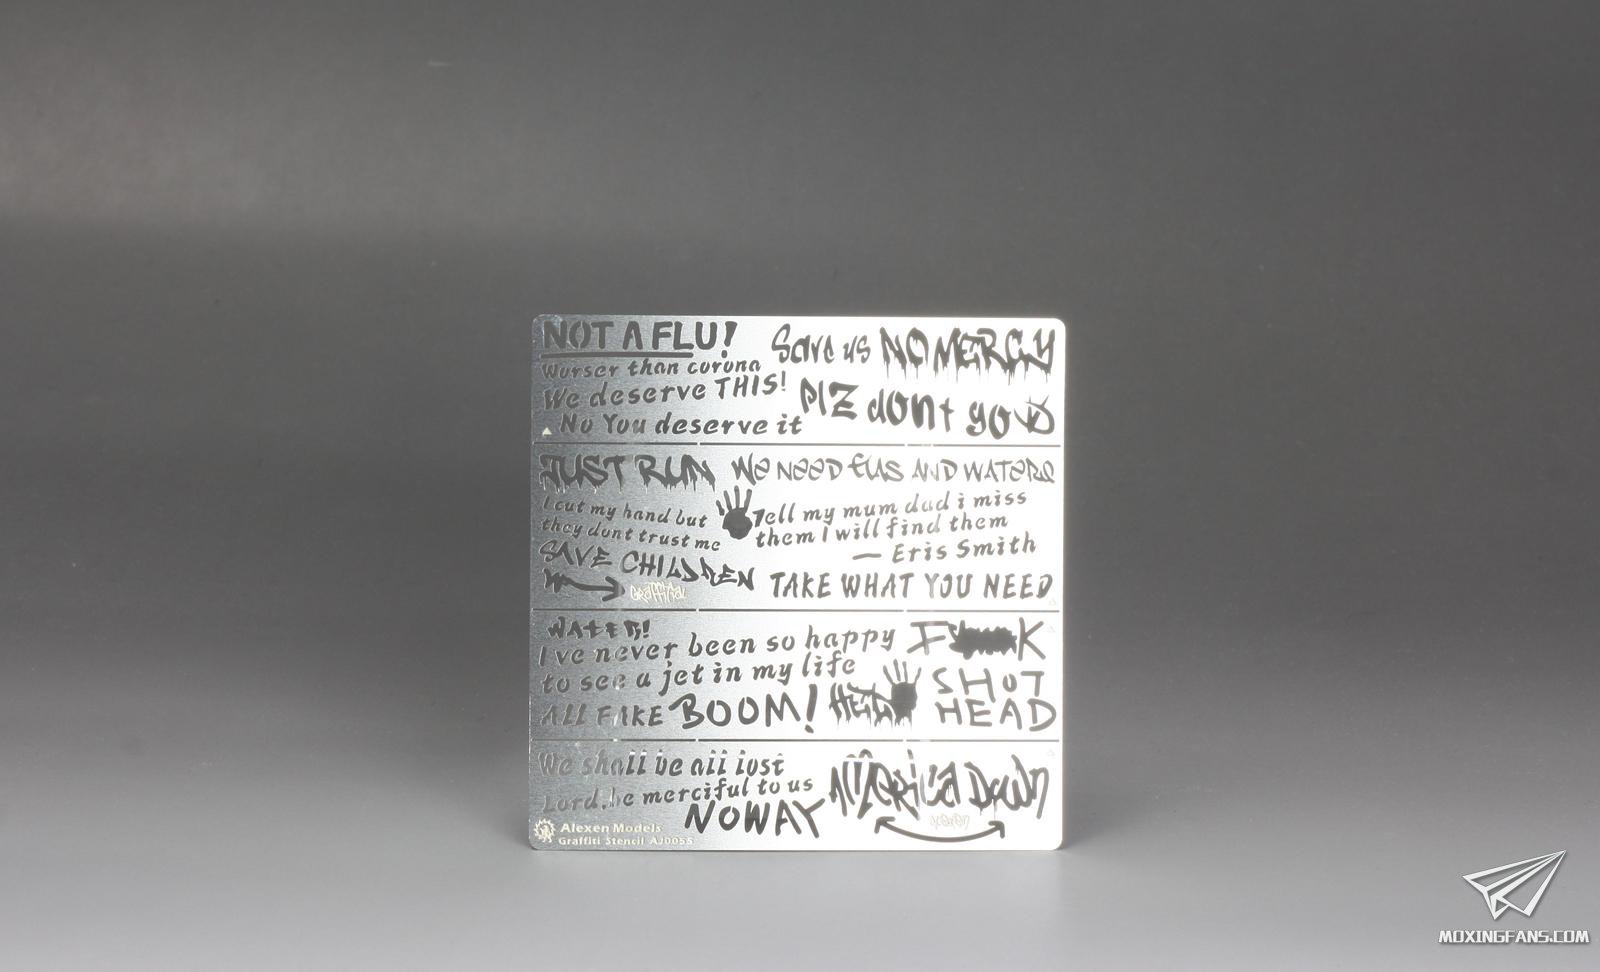 NOT A FLU!
Worser than corona
We deserve THIS!
No You deserve it
Save us NO MERCY
PlZ dont go
JUST RUN
We NEED fUS AND WATERS
I cut my hand but
they dont trust me
Tell my mum dad i miss
them I will find them
— Eris Smith
SAVE CHILDREN
Graffical
TAKE WHAT YOU NEED
WATER!
I've never been so happy
to see a jet in my life
F K
ALL FAKE BOOM!
SHOT
HEAD
We shall be all lost
Lord, be merciful to us
NO WAY
America Down
Alexen Models
Graffiti Stencil AJ0055
MOXINGFANS.COM